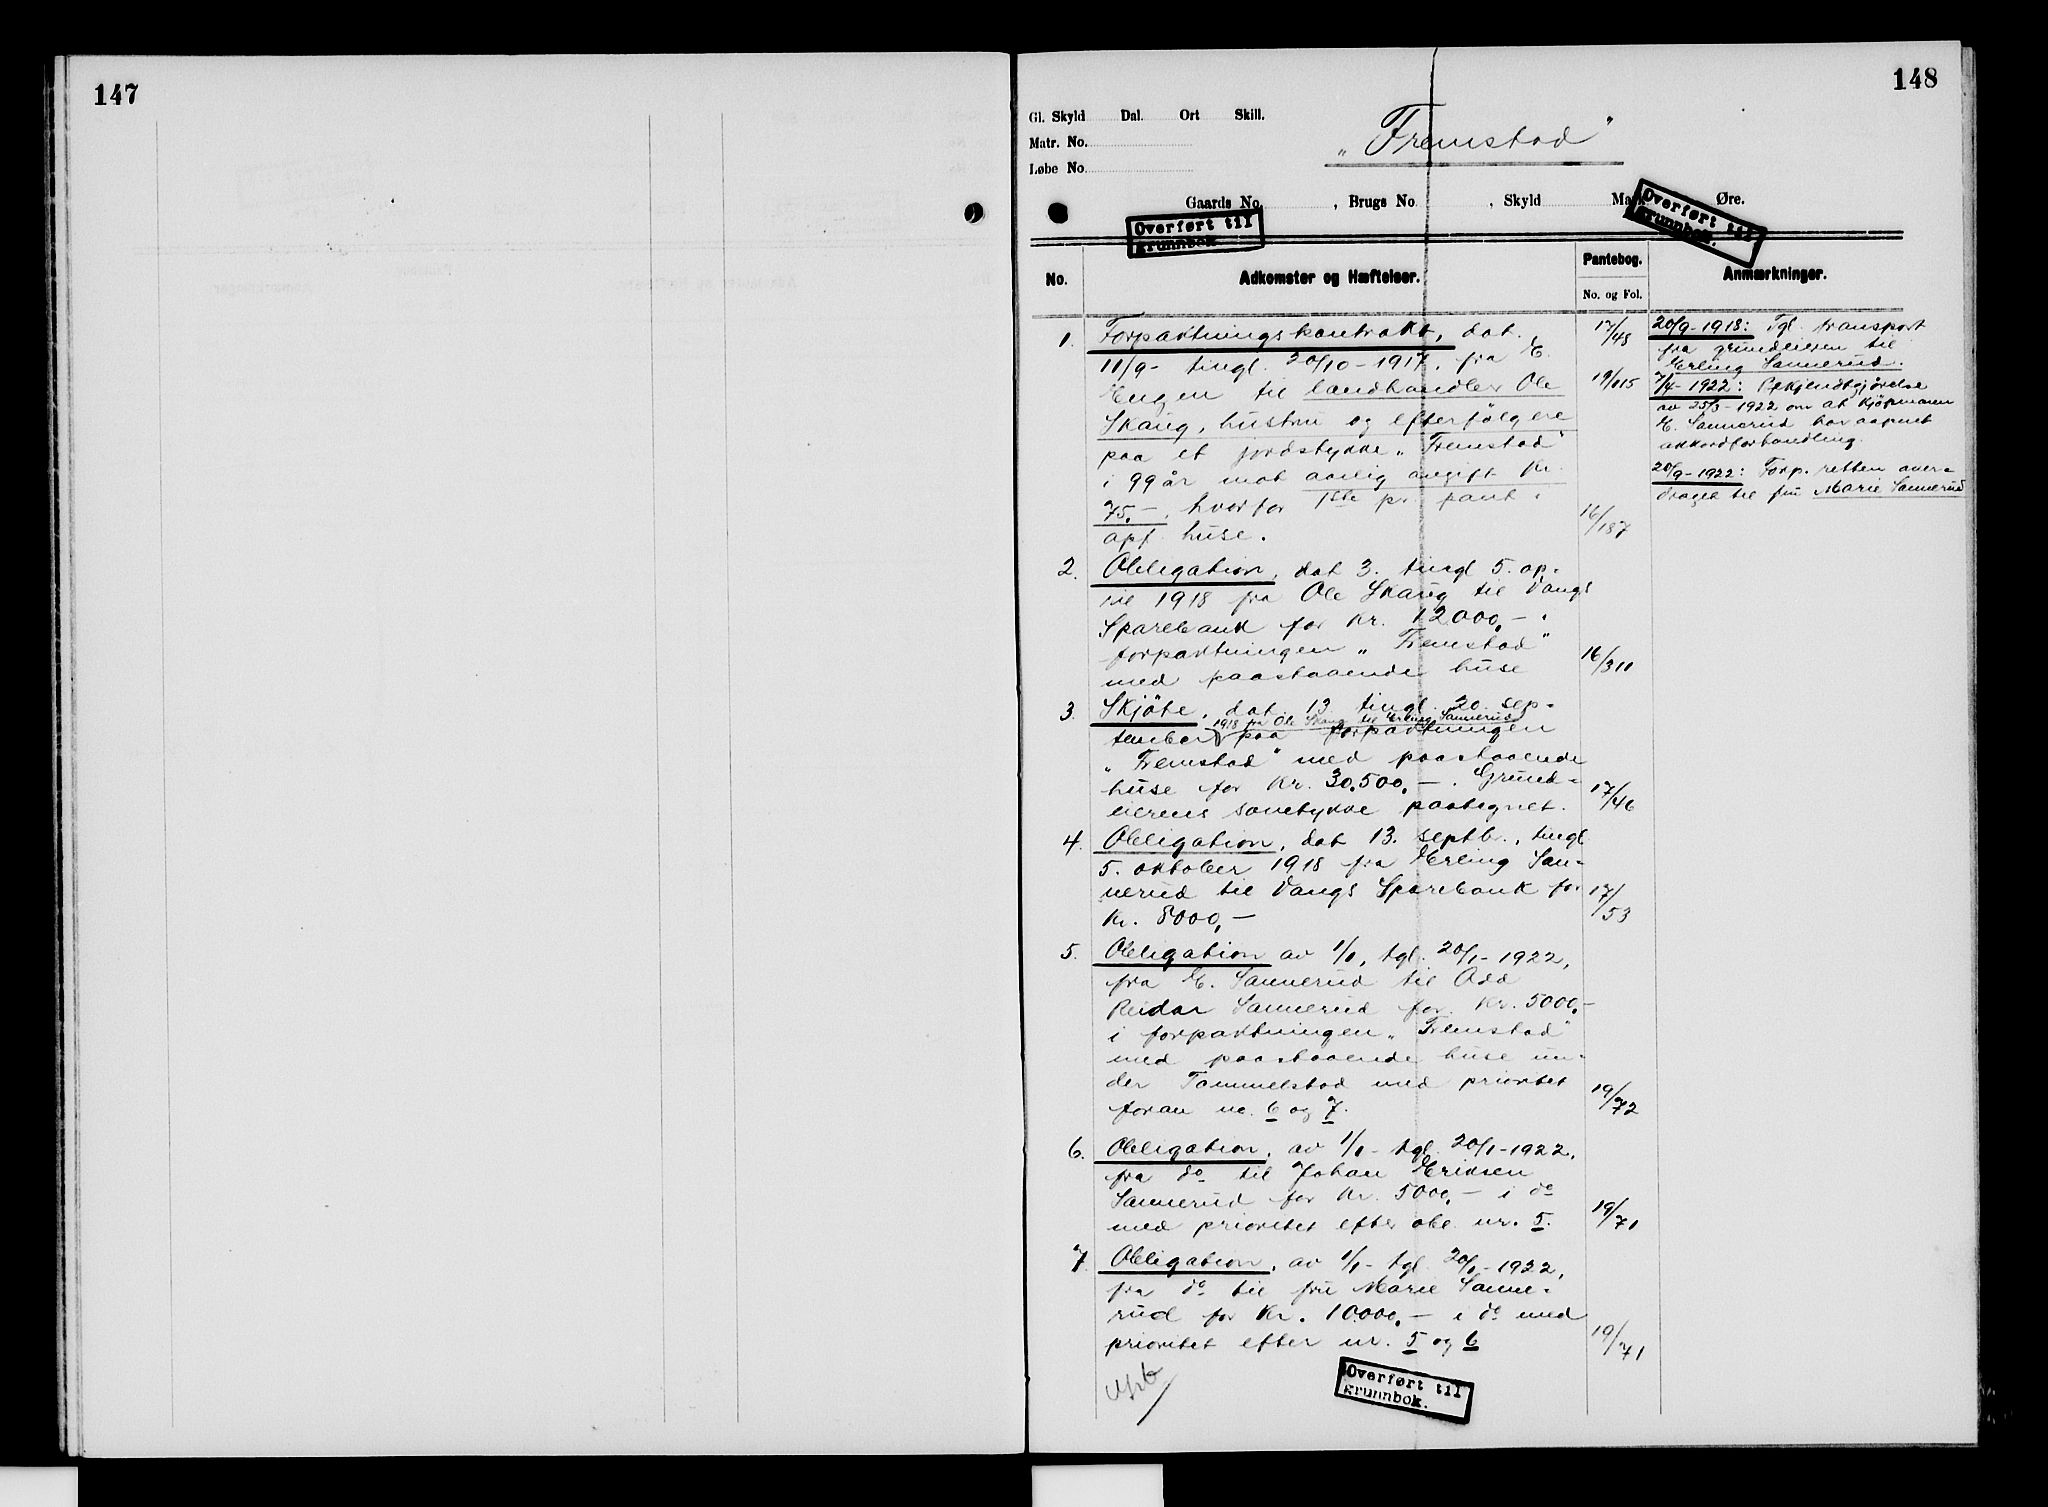 147
148
Gl. Skyld Dal. Ort Skill.
Matr. No.
Løbe No.
"Fremstad"
Gaards No. , Brugs No. , Skyld Mark Øre.
Overført til
grunnbok.
Overført til
grunnbok.
No.
Adkomster og Hæftelser.
Pantebog.
No. og Fol.
Anmærkninger.
1. Forpaktningskontrakt, dat.
11/9- tingl. 20/10-1917, fra E.
Engen til landhandler Ole
Skaug, hustru og efterfølgere
paa et jordstykke "Fremstad"
i 99 år mot aarlig avgift Kr.
75,-, hvorfor 1ste pr. pant i
opf. huse. 16/187
2. Obligation, dat 3. tingl 5. ap-
ril 1918 fra Ole Skaug til Vangs
Sparebank for Kr. 12000,- i
forpaktningen "Fremstad"
med paastaaende huse 16/310
3. Skjøte, dat. 13. tingl. 20. sep-
1918 fra Ole Skaug til Erling Sannerud
tember paa forpaktningen
"Fremstad" med paastaaende
huse for Kr. 30.500,-. Grund-
eierens samtykke paategnet. 17/46
4. Obligation, dat 13. septb., tingl
5. oktober 1918 fra Erling San-
nerud til Vangs Sparebank for
Kr. 8000,- 17/53
5. Obligation av 1/1, tgl. 20/1-1922,
fra E. Sannerud til Odd
Reidar Sannerud for Kr. 5000,-
i forpaktningen "Fremstad"
med paastaaende huse un-
der Tommelstad med prioritet
foran nr. 6 og 7. 19/72
6. Obligation, av 1/1- tgl. 20/1-1922,
fra do til Johan Eriksen
Sannerud for Kr. 5000,- i do
med prioritet efter obl. nr. 5. 19/71
7. Obligation, av 1/1- tgl. 20/1-1922,
fra do til fru Marie Sanne-
rud for Kr. 10000,- i do med
prioritet efter nr. 5 og 6 19/71
17/48
20/9-1918: Tgl. transport
fra grundeieren til
Erling Sannerud.
19/115
7/4-1922: Bekjendtgjørelse
av 25/3-1922 om at Kjøpmann
E. Sannerud har aapnet
akkordforhandling.
20/9-1922: Forp. retten over-
draget til fru Marie Sannerud
Overført til
grunnbok.